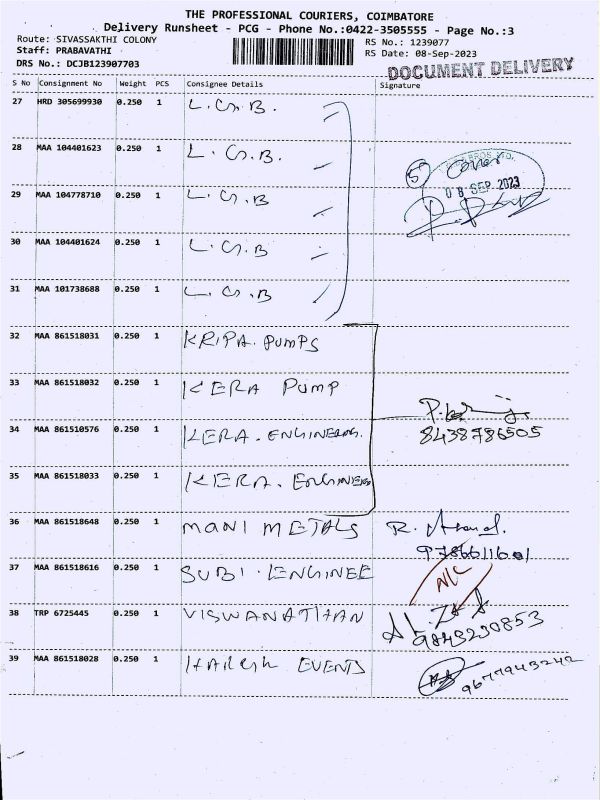 THE PROFESSIONAL COURIERS, COIMBATORE
Delivery Runsheet - PCG - Phone No.:0422-3505555 - Page No.:3
Route: SIVASSAKTHI COLONY RS No.: 1239077
Staff: PRABAVATHI RS Date: 08-Sep-2023
DRS No.: DCJB123907703 DOCUMENT DELIVERY
S No Consignment No Weight PCS Consignee Details Signature
27 HRD 305699930 0.250 1 L.G.B.
28 MAA 104401623 0.250 1 L.G.B.
5 Cover
08 SEP 2023
29 MAA 104778710 0.250 1 L.G.B
30 MAA 104401624 0.250 1 L.G.B
31 MAA 101738688 0.250 1 L.G.B
32 MAA 861518031 0.250 1 KRIPA.PUMPS
33 MAA 861518032 0.250 1 KERA PUMP
34 MAA 861510576 0.250 1 KERA.ENGINEERING. 8438786505
35 MAA 861518033 0.250 1 KERA.ENGINEERS
36 MAA 861518648 0.250 1 MANI METALS
9786611601
37 MAA 861518616 0.250 1 SUBI.ENGINEE N/C
38 TRP 6725445 0.250 1 VISWANATHAN 9843230853
39 MAA 861518028 0.250 1 HARESH EVENTS 9677943242